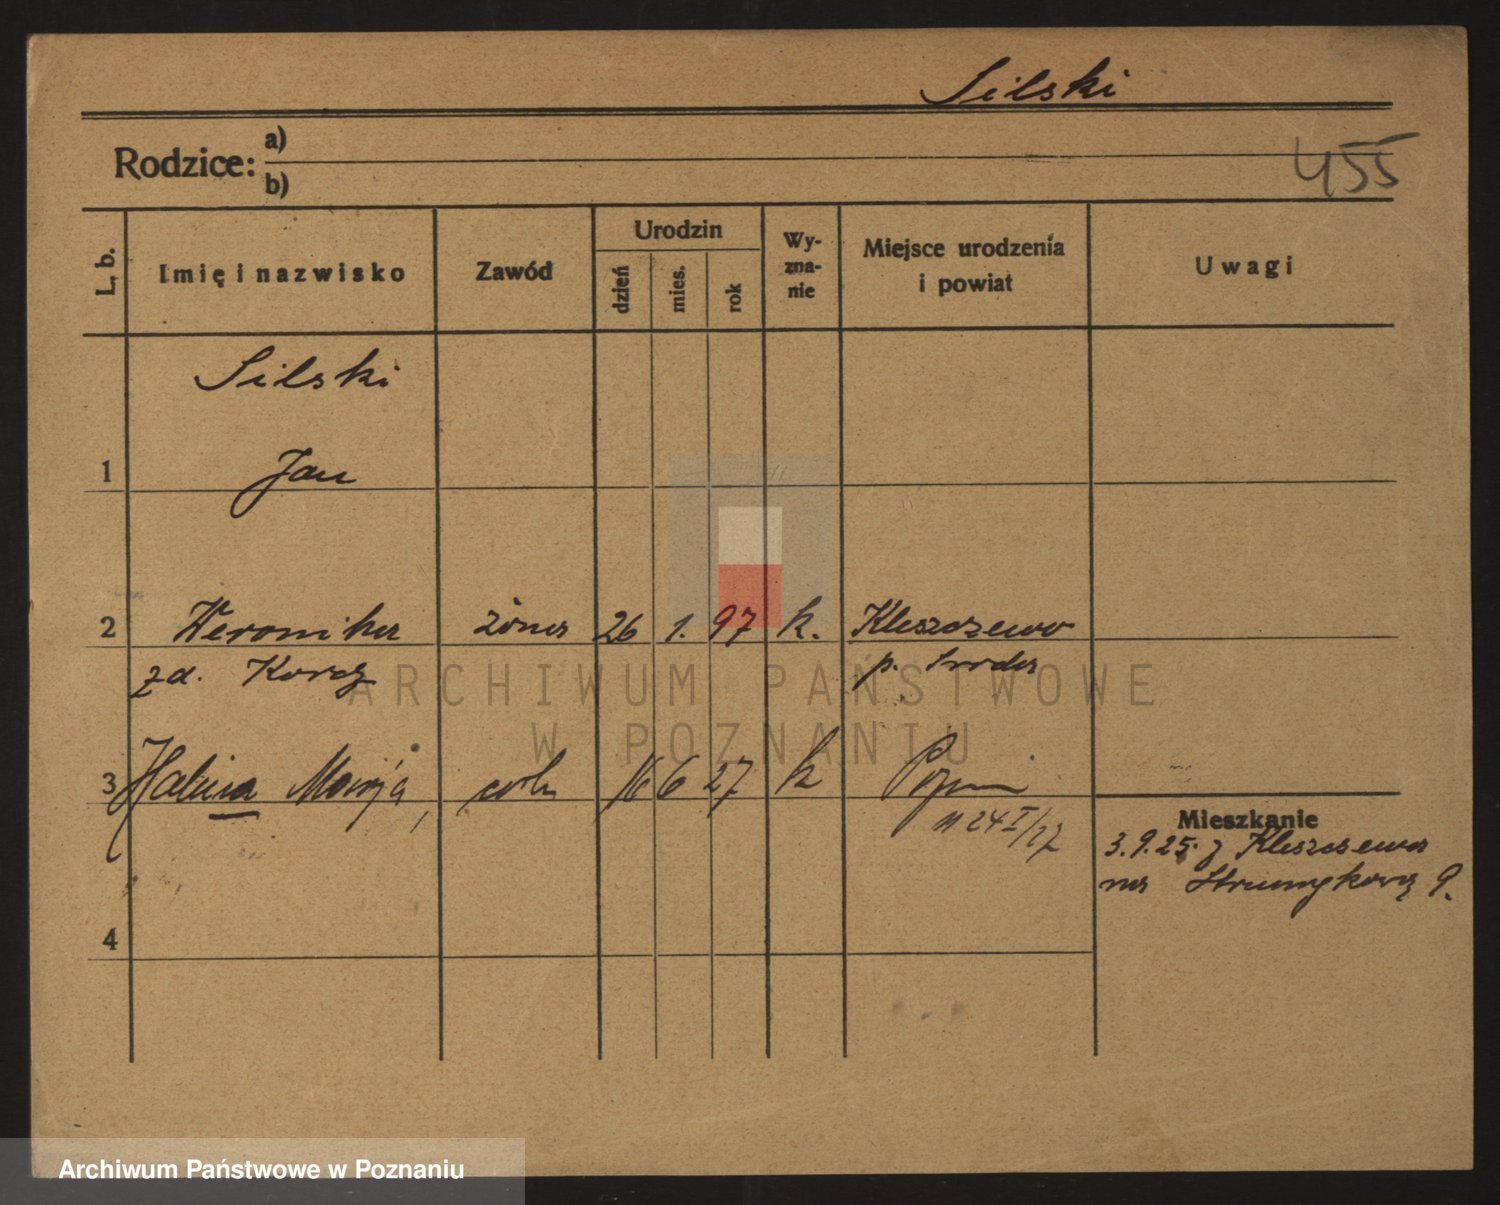 Silski
Rodzice: a)
b)
455
L. b.
Imię i nazwisko
Zawód
Urodzin
dzień
mies.
rok
Wy-
zna-
nie
Miejsce urodzenia
i powiat
Uwagi
Silski
1 Jan
2 Weronika żona 26 1. 97 k. Kleszczewo
zd. p. Środa
3 Halina Maryja, 16 6 27 k
24 I/27
Mieszkanie
3.9.25. z Kleszczewa
na Strumykową 9.
4
ARCHIWUM PAŃSTWOWE
W POZNANIU
Archiwum Państwowe w Poznaniu